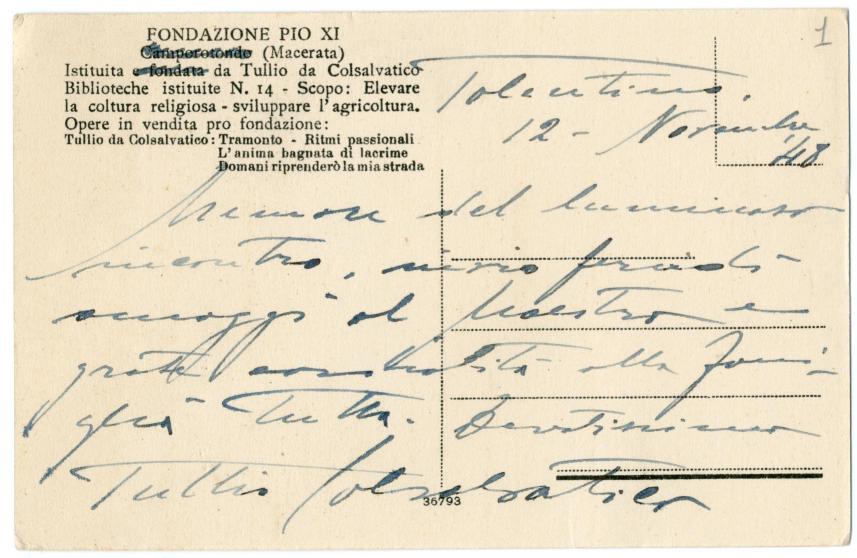 1
FONDAZIONE PIO XI
Camporotondo (Macerata)
Istituita e fondata da Tullio da Colsalvatico
Biblioteche istituite N. 14 - Scopo: Elevare
la coltura religiosa - sviluppare l'agricoltura.
Opere in vendita pro fondazione:
Tullio da Colsalvatico: Tramonto - Ritmi passionali
L'anima bagnata di lacrime
Domani riprenderò la mia strada
Tolentino,
12 - Novembre
48
Memore del luminoso
incontro, invio fervidi
omaggi al Maestro e
grata cordialità alla fami-
glia tutta. Devotissimo
Tullio Colsalvatico
36793